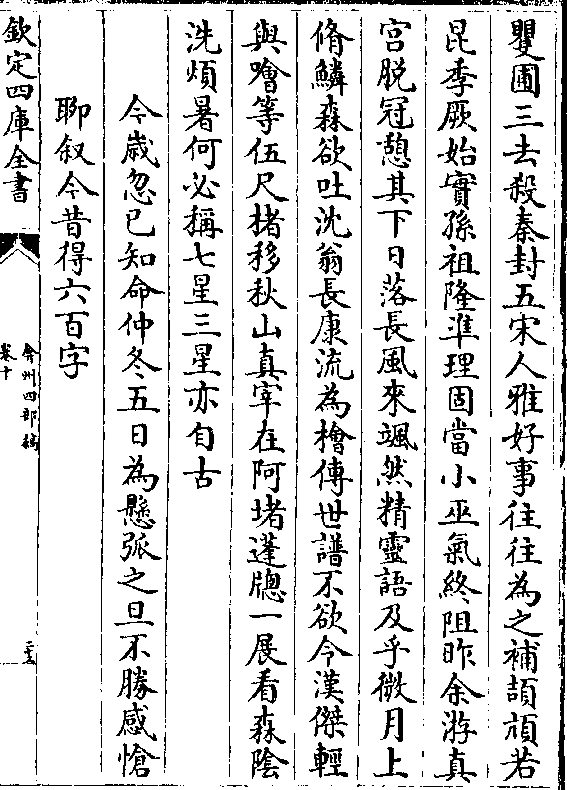 矍圃三去殺秦封五宋人雅好事往往為之補頡頏若
昆季厥始實孫祖隆準理固當小巫氣終阻昨余游真
宮脱冠憩其下日落長風來颯然精靈語及乎微月上
脩鱗森欲吐沈翁長康流為檜傳世譜不欲令漢傑輕
與噲等伍尺楮移秋山真宰在阿堵蓬牕一展看森陰
洗煩暑何必稱七星三星亦自古
今歳忽已知命仲冬五日為懸弧之旦不勝感愴
聊叙今昔得六百字
欽定四庫全書
弇州四部稿
卷十